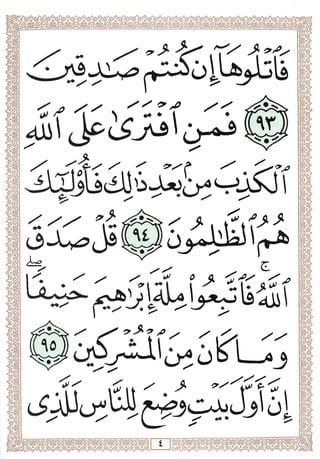 فَٱتۡلُوهَآ إِن كُنتُمۡ صَٰدِقِينَ
٩٣ فَمَنِ ٱفۡتَرَىٰ عَلَى ٱللَّهِ
ٱلۡكَذِبَ مِنۢ بَعۡدِ ذَٰلِكَ فَأُوْلَٰٓئِكَ
هُمُ ٱلظَّٰلِمُونَ ٩٤ قُلۡ صَدَقَ
ٱللَّهُۗ فَٱتَّبِعُواْ مِلَّةَ إِبۡرَٰهِيمَ حَنِيفٗاۖ
وَمَا كَانَ مِنَ ٱلۡمُشۡرِكِينَ ٩٥
إِنَّ أَوَّلَ بَيۡتٖ وُضِعَ لِلنَّاسِ لَلَّذِي
٤